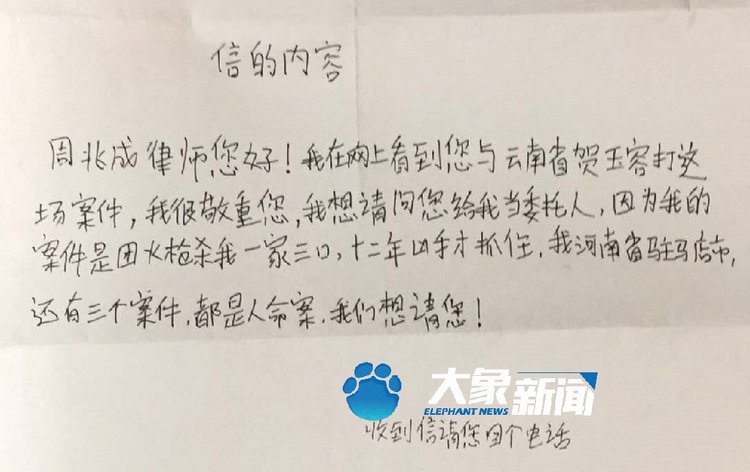 信的内容
周兆成律师您好！我在网上看到您与云南省贺玉容打这
场案件，我很敬重您，我想请问您给我当委托人，因为我的
案件是用火枪杀我一家三口，十二年凶手才抓住，我河南省驻马店市，
还有三个案件，都是人命案，我们想请您！
大象新闻
ELEPHANT NEWS
收到信请您回个电话